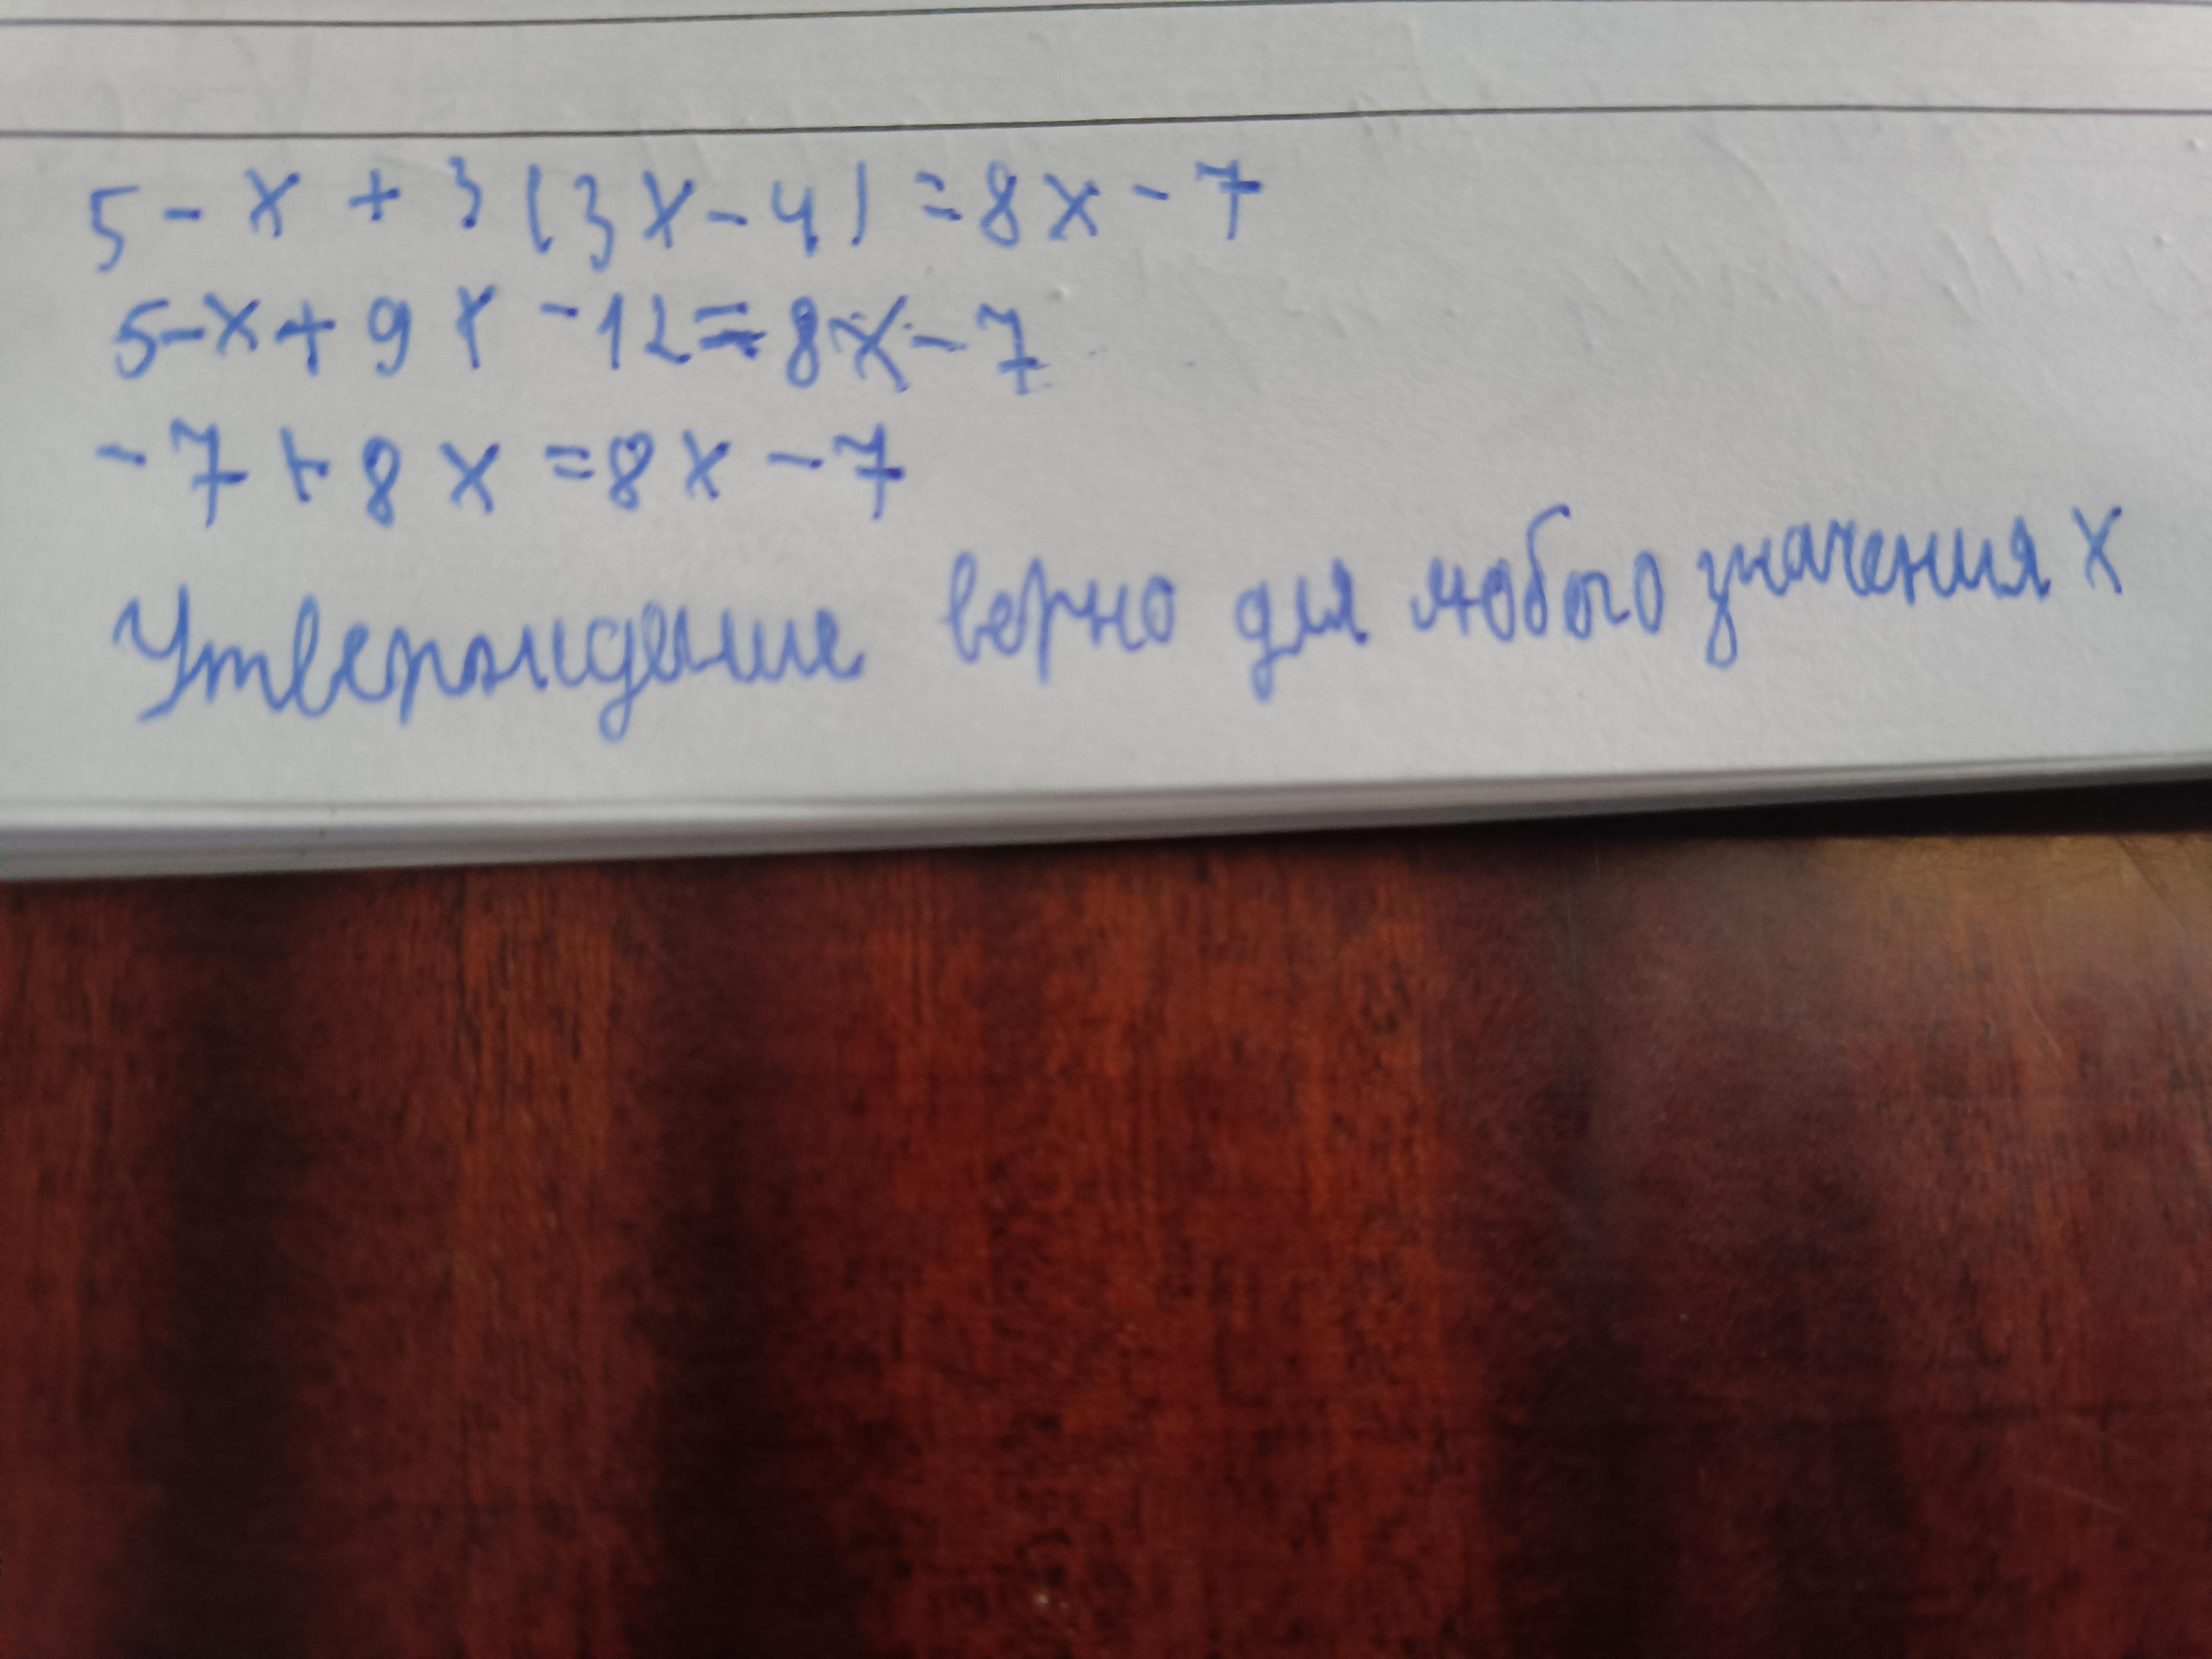 5 - x + 3 (3x - 4) = 8x - 7
5 - x + 9x - 12 = 8x - 7
- 7 + 8x = 8x - 7
Утверждение верно для любого значения x